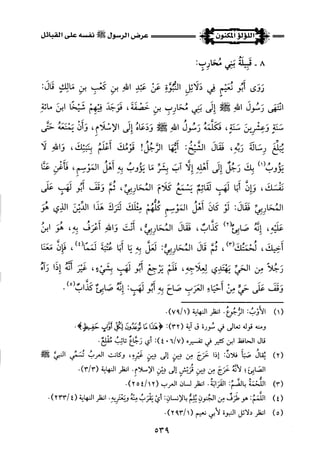 عرض الرسول ﷺ نفسه على القبائل
اللؤلؤ المكنون
٨ ـ قَبِيلَةُ بَنِي مُحَارِبٍ:
رَوَى أَبُو نُعَيْمٍ فِي دَلَائِلِ النُّبُوَّةِ عَنْ عَبْدِ اللهِ بنِ كَعْبِ بنِ مَالِكٍ قَالَ:
انْتَهَى رَسُولُ اللهِ ﷺ إِلَى بَنِي مُحَارِبِ بنِ خَصَفَةَ، فَوَجَدَ فِيهِمْ شَيْخًا ابنَ مائةِ
سَنَةٍ وَعِشْرِينَ سَنَةٍ، فَكَلَّمَهُ رَسُولُ اللهِ ﷺ وَدَعَاهُ إِلَى الإِسْلَامِ، وَأَنْ يَمْنَعَهُ حَتَّى
يُبَلِّغَ رِسَالَةَ رَبِّهِ، فَقَالَ الشَّيْخُ: أَيُّهَا الرَّجُلُ! قَوْمُكَ أَعْلَمُ بِنَبَئِكَ، وَاللهِ لَا
يَؤُوبُ(١) بِكَ رَجُلٌ إِلَى أَهْلِهِ إِلَّا آبَ بِشَرِّ مَا يَؤُوبُ بِهِ أَهْلُ المَوْسِمِ، فَأَغْنِ عَنَّا
نَفْسَكَ، وَإِنَّ أَبَا لَهَبٍ لَقَائِمٌ يَسْمَعُ كَلَامَ المُحَارِبِيِّ، ثُمَّ وَقَفَ أَبُو لَهَبٍ عَلَى
المُحَارِبِيِّ فَقَالَ: لَوْ كَانَ أَهْلُ المَوْسِمِ كُلُّهُمْ مِثْلَكَ لَتَرَكَ هَذَا الدِّينَ الذِي هُوَ
عَلَيْهِ، إِنَّهُ صَابِئٌ(٢) كَذَّابٌ، فَقَالَ المُحَارِبِيُّ: أَنْتَ وَاللهِ أَعْرَفُ بِهِ، هُوَ ابنُ
أَخِيكَ، لُحْمَتُكَ(٣)، ثُمَّ قَالَ المُحَارِبِيُّ: لَعَلَّ بِهِ يَا أَبَا عُتْبَةَ لَمَمًا(٤)، فَإِنَّ مَعَنَا
رَجُلًا مِنَ الحَيِّ يَهْتَدِي لِعِلَاجِهِ، فَلَمْ يَرْجِعْ أَبُو لَهَبٍ بِشَيْءٍ، غَيْرَ أَنَّهُ إِذَا رَآهُ
وَقَفَ عَلَى حَيٍّ مِنْ أَحْيَاءِ العَرَبِ صَاحَ بِهِ أَبُو لَهَبٍ: إِنَّهُ صَابِئٌ كَذَّابٌ(٥).
(١) الأَوْبُ: الرُّجُوعُ. انظر النهاية (٧٩/١).
ومنه قوله تعالى في سُورة ق آية (٣٢): ﴿هَذَا مَا تُوعَدُونَ لِكُلِّ أَوَّابٍ حَفِيظٍ﴾.
قال الحافظ ابن كثير في تفسيره (٤٠٦/٧): أي رَجَّاعٍ تائبٍ مُقْلِعٍ.
(٢) يُقالُ صَبَأَ فلانٌ: إذا خَرَجَ مِن دِينٍ إلى دِينِ غَيْرِهِ، وكانت العربُ تُسَمِّي النبيَّ ﷺ
الصَّابِئَ، لأنَّهُ خَرَجَ مِن دِينِ قُرَيْشٍ إلى دِيْنِ الإسلامِ. انظر النهاية (٣/٣).
(٣) اللُّحْمَةُ بالضَّمِّ: القَرَابَةُ. انظر لسان العرب (٢٥٤/١٢).
(٤) اللَّمَمُ: هو طَرَفٌ مِنَ الجُنُونِ يُلِمُّ بالإنسانِ: أيْ يَقْرَبُ مِنْهُ ويَعْتَرِيهِ. انظر النهاية (٢٣٣/٤).
(٥) انظر دلائل النبوة لأبي نعيم (٢٩٣/١).
٥٣٩